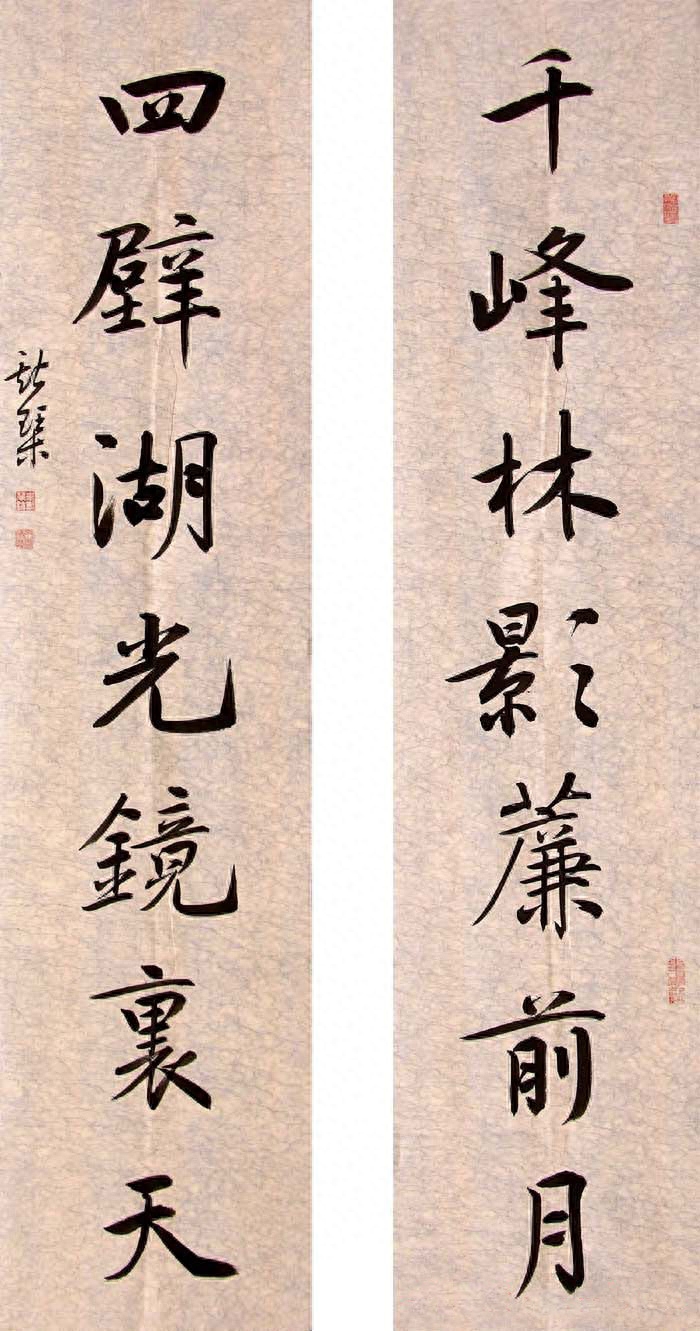 千峰林影薕前月
四壁湖光鏡裏天